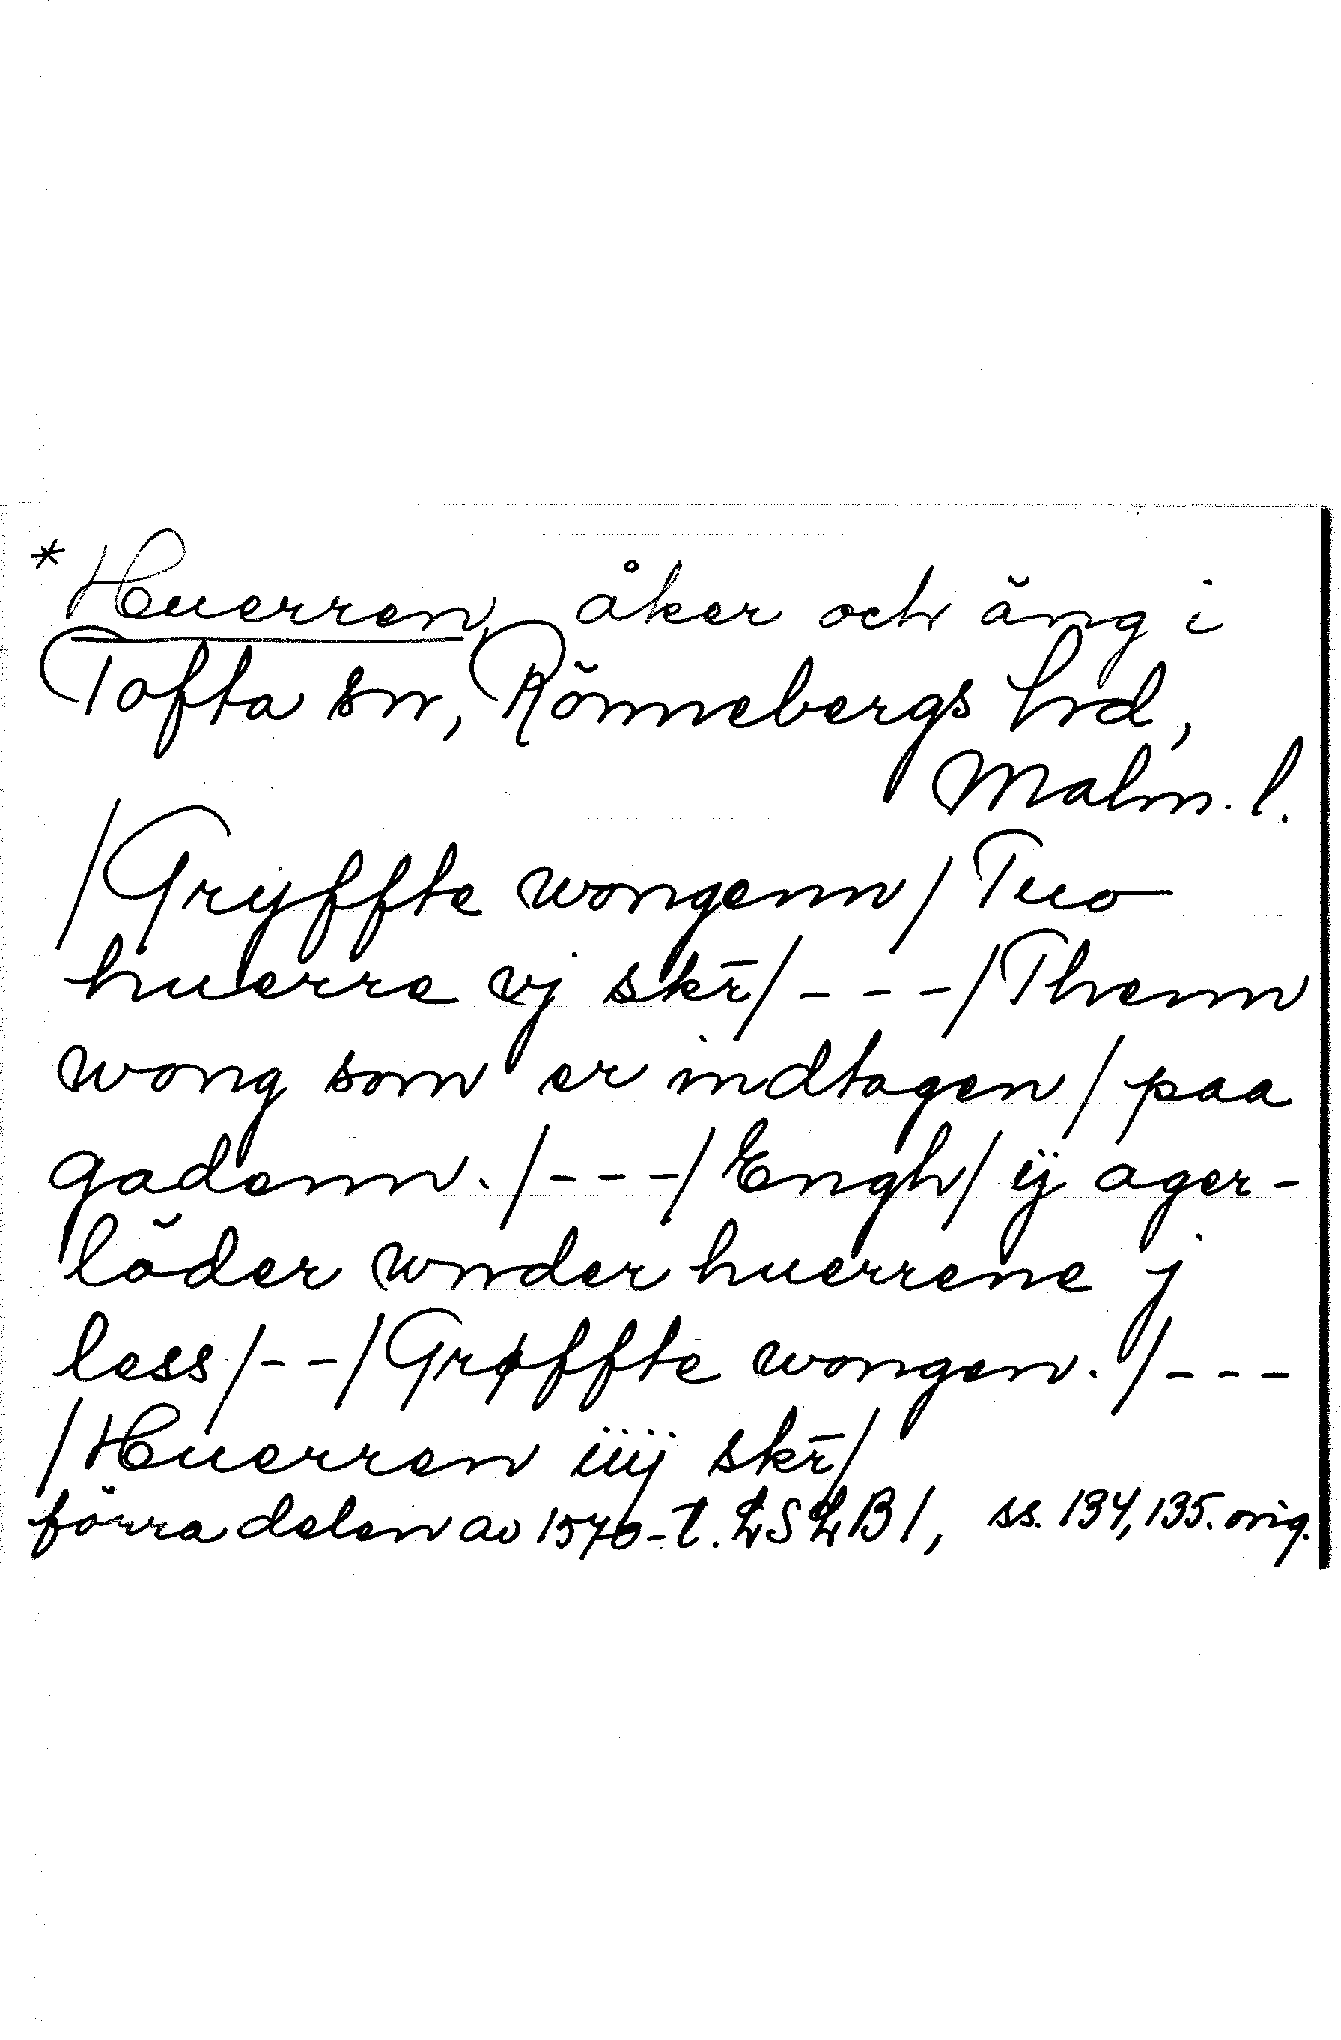 * Huerren, åker och äng i
Tofta sn, Rönnebergs hd,
Malm. l.
/Gryffte wongenn/ Tuo
huerre vj skr̄/ - - - /Thenn
wong som er indtagen / paa
gadenn. / - - - / Engh/ ij ager-
löder wnder huerrene j
less/ - - /Grøffte wongen. / - - -
/Huerren iiij skr̄/
förra delen av 1570-t. LSLB 1, ss. 134, 135. orig.